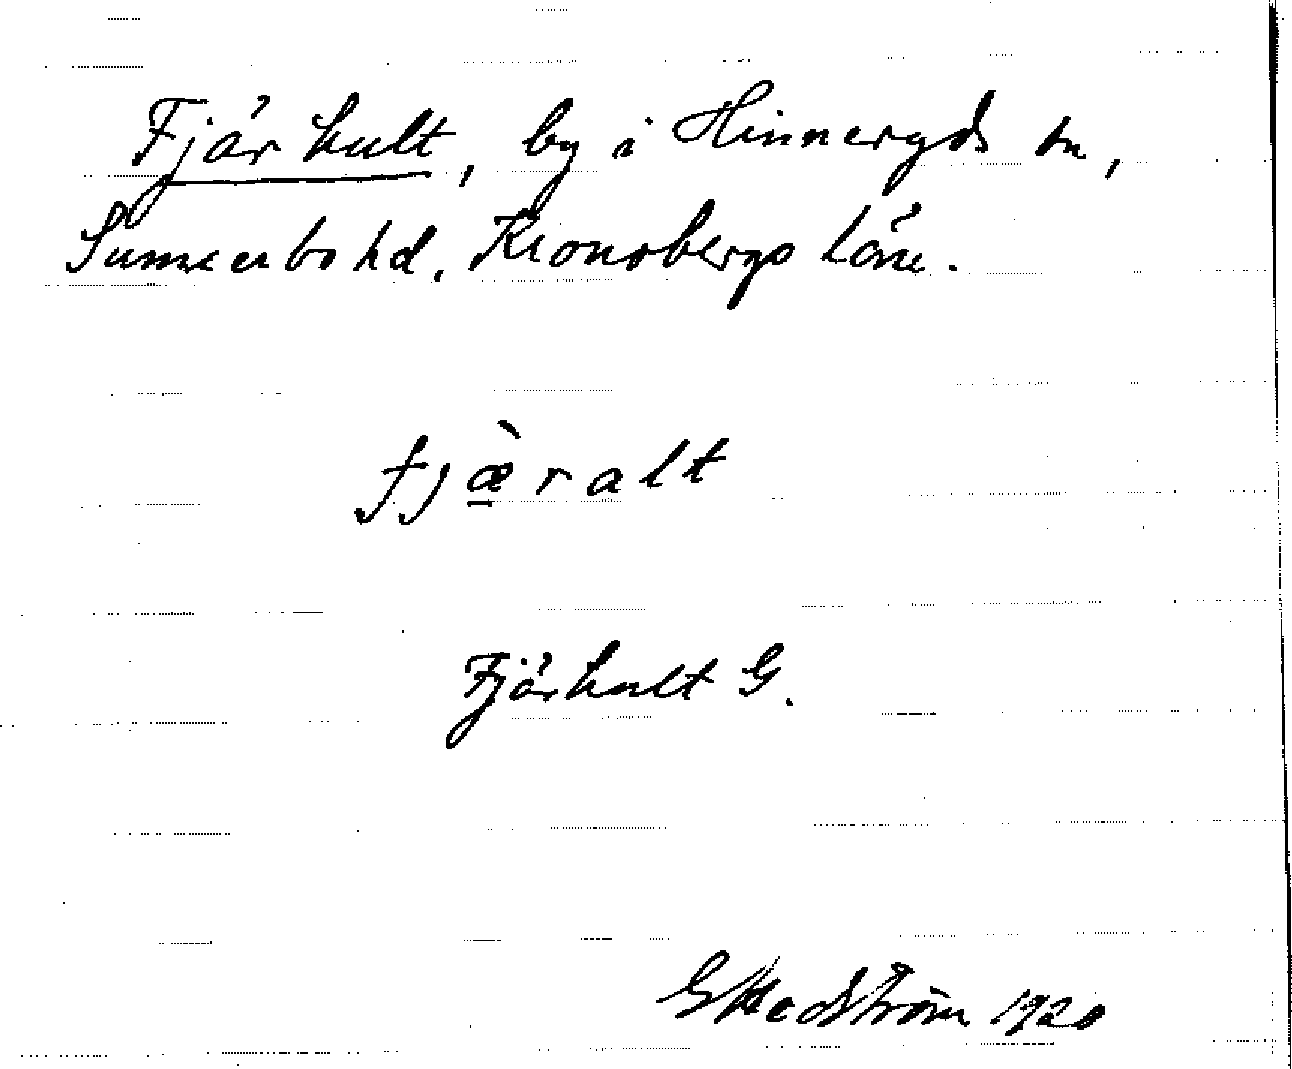 Fjärhult, by i Hinneryds sn,
Sunnerbo hd, Kronobergs län.
fjæ̱̀ralt
Fjärhult G.
G Hedström 1920